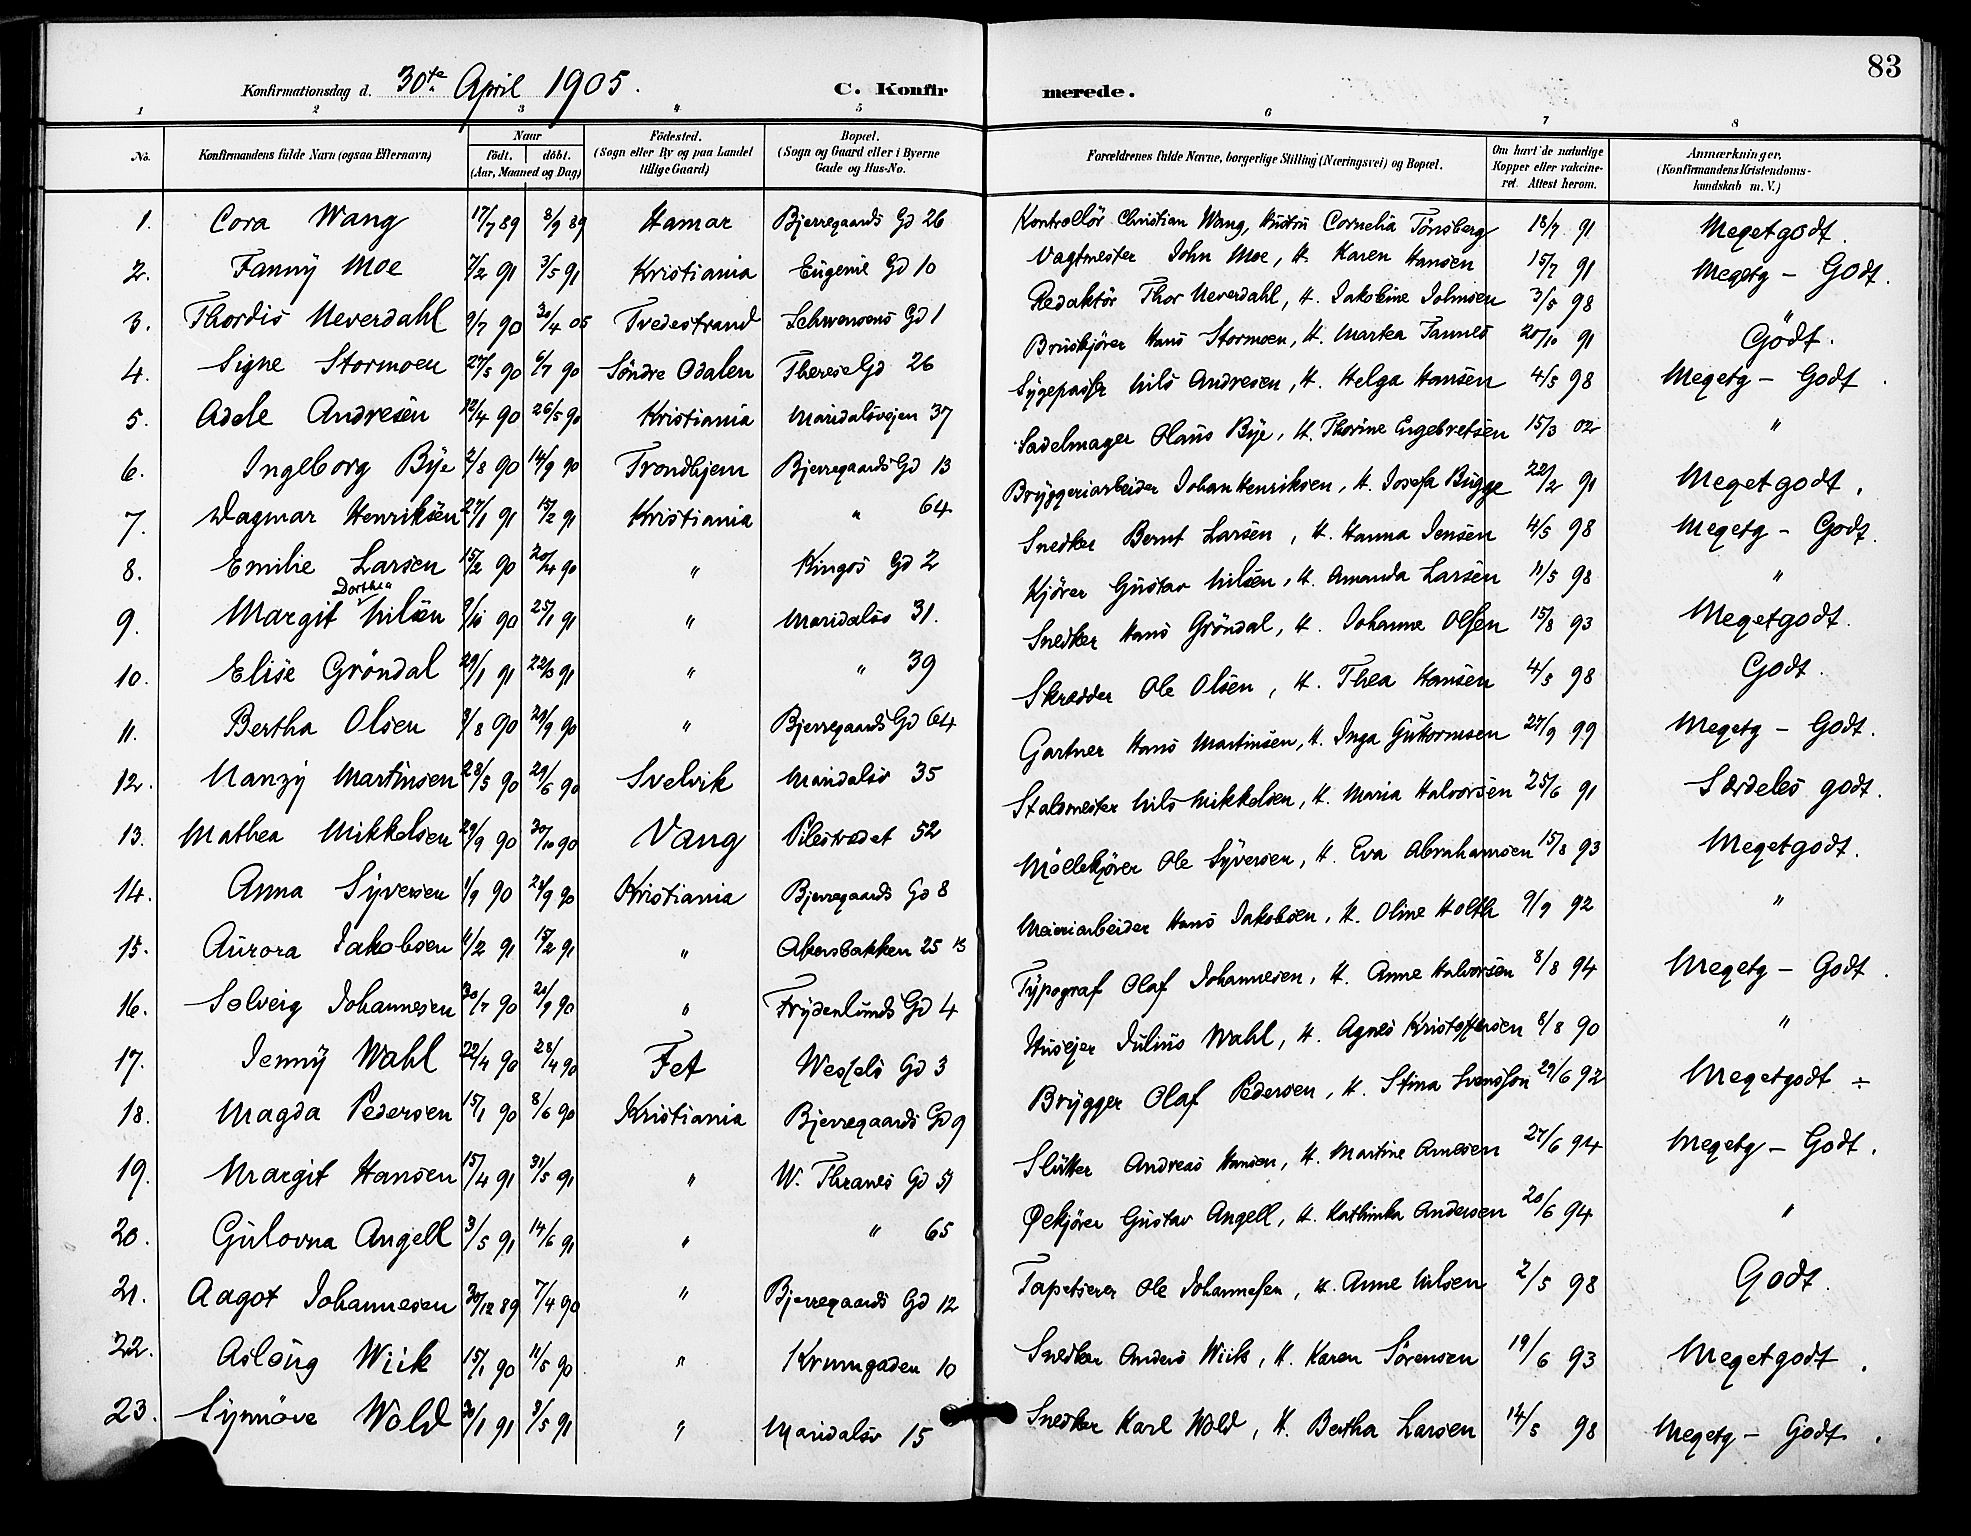 83
Konfirmationsdag d. 30te April 1905.
C. Konfirmerede.
1 2 3 4 5 6 7 8
No.
Konfirmandens fulde Navn (ogsaa Efternavn)
Naar
födt. döbt.
(Aar, Maaned og Dag)
Födested.
(Sogn eller By og paa Landet
tillige Gaard)
Bopæl.
(Sogn og Gaard eller i Byerne
Gade og Hus-No.
Forældrenes fulde Navne, borgerlige Stilling (Næringsvei) og Bopæl.
Om havt de naturlige
Kopper eller vakcine-
ret. Attest herom.
Anmærkninger.
(Konfirmandens Kristendoms-
kundskab m. V.)
1. Cora Wang 17/7 89 8/9 89 Hamar Bjerregaards Gd 26 Kontrollör Christian Wang, Hustru Cornelia Tönsberg 18/7 91 Megetgodt.
2. Fanny Moe 7/2 91 3/5 91 Kristiania Eugenie Gd 10 Vagtmester John Moe, H. Karen Hansen 15/7 91 Megetg - Godt.
3. Thordis Neverdahl 9/7 90 30/4 05 Tvedestrand Schwensens Gd 1 Redaktör Thor Neverdahl, H. Jakobine Johnsen 3/5 98 "
4. Signe Stormoen 27/5 90 6/7 90 Söndre Odalen Therese Gd 26 Bruskjörer Hans Stormoen, H. Martea Tannes 20/10 91 Godt.
5. Adele Andresen 12/4 90 26/5 90 Kristiania Maridalsvejen 37 Sygepasser Nils Andresen, H. Helga Hansen 4/5 98 Megetg - Godt.
6. Ingeborg Bye 2/8 90 14/9 90 Trondhjem Bjerregaards Gd 13 Sadelmager Olaus Bye, H. Thorine Engebretsen 15/3 02 "
7. Dagmar Henriksen 27/1 91 15/2 91 Kristiania " 64 Bryggeriarbeider Johan Henriksen, H. Josefa Bugge 22/2 91 Megetgodt.
8. Emilie Larsen 15/2 90 20/4 90 " Kingos Gd 2 Snedker Bernt Larsen, H. Hanna Jensen 4/5 98 Megetg - Godt.
9. Margit Dorthea Nilsen 9/10 90 25/1 91 " Maridalsv 31. Kjörer Gustav Nilsen, H. Amanda Larsen 11/5 98 "
10. Elise Gröndal 29/1 91 22/3 91 " " 39 Snedker Hans Gröndal, H. Johanne Olsen 15/8 93 Megetgodt.
11. Bertha Olsen 3/8 90 29/9 90 " Bjerregaards Gd 64 Skrædder Ole Olsen, H. Thea Hansen 4/5 98 Godt.
12. Nanzy Martinsen 28/5 90 29/6 90 Svelvik Maridalsv 35 Gartner Hans Martinsen, H. Inga Guttormsen 27/9 99 Megetg - Godt.
13. Mathea Mikkelsen 29/9 90 30/10 90 Vang Pilestrædet 52 Staldmester Nils Mikkelsen, H. Maria Halvorsen 25/6 91 Særdeles godt.
14. Anna Syversen 1/9 90 21/9 90 Kristiania Bjerregaards Gd 8 Möllekjörer Ole Syversen, H. Eva Abrahamsen 15/8 93 Megetgodt.
15. Aurora Jakobsen 11/2 91 15/2 91 " Akersbakken 25 B Meieriarbeider Hans Jakobsen, H. Oline Holth 9/9 92 "
16. Solveig Johannesen 30/7 90 21/9 90 " Frydenlunds Gd 4 Typograf Olaf Johannesen, H. Anne Halvorsen 8/8 94 Megetg - Godt.
17. Jenny Wahl 22/4 90 28/4 90 Fet Wessels Gd 3 Husejer Julius Wahl, H. Agnes Kristoffersen 8/8 90 "
18. Magda Pedersen 15/1 90 8/6 90 Kristiania Bjerregaards Gd 9 Brygger Olaf Pedersen, H. Stina Svensson 29/6 92 Megetgodt ÷
19. Margit Hansen 15/4 91 31/5 91 " W. Thranes Gd 51 Slutter Andreas Hansen, H. Martine Arnesen 27/6 94 Megetg - Godt.
20. Gulovna Angell 3/5 91 14/6 91 " " 65 Ölkjörer Gustav Angell, H. Kathinka Andersen 20/6 94 "
21. Aagot Johannesen 30/12 89 7/4 90 " Bjerregaards Gd 12 Tapetserer Ole Johannesen, H. Anne Nilsen 2/5 98 Godt.
22. Aslaug Wiik 15/1 90 11/5 90 " Krumgaden 10 Snedker Anders Wiik, H. Karen Sörensen 19/6 93 Megetgodt.
23. Synnöve Wold 30/1 91 3/5 91 " Maridalsv 15 Snedker Karl Wold, H. Bertha Larsen 14/5 98 Megetg - Godt.